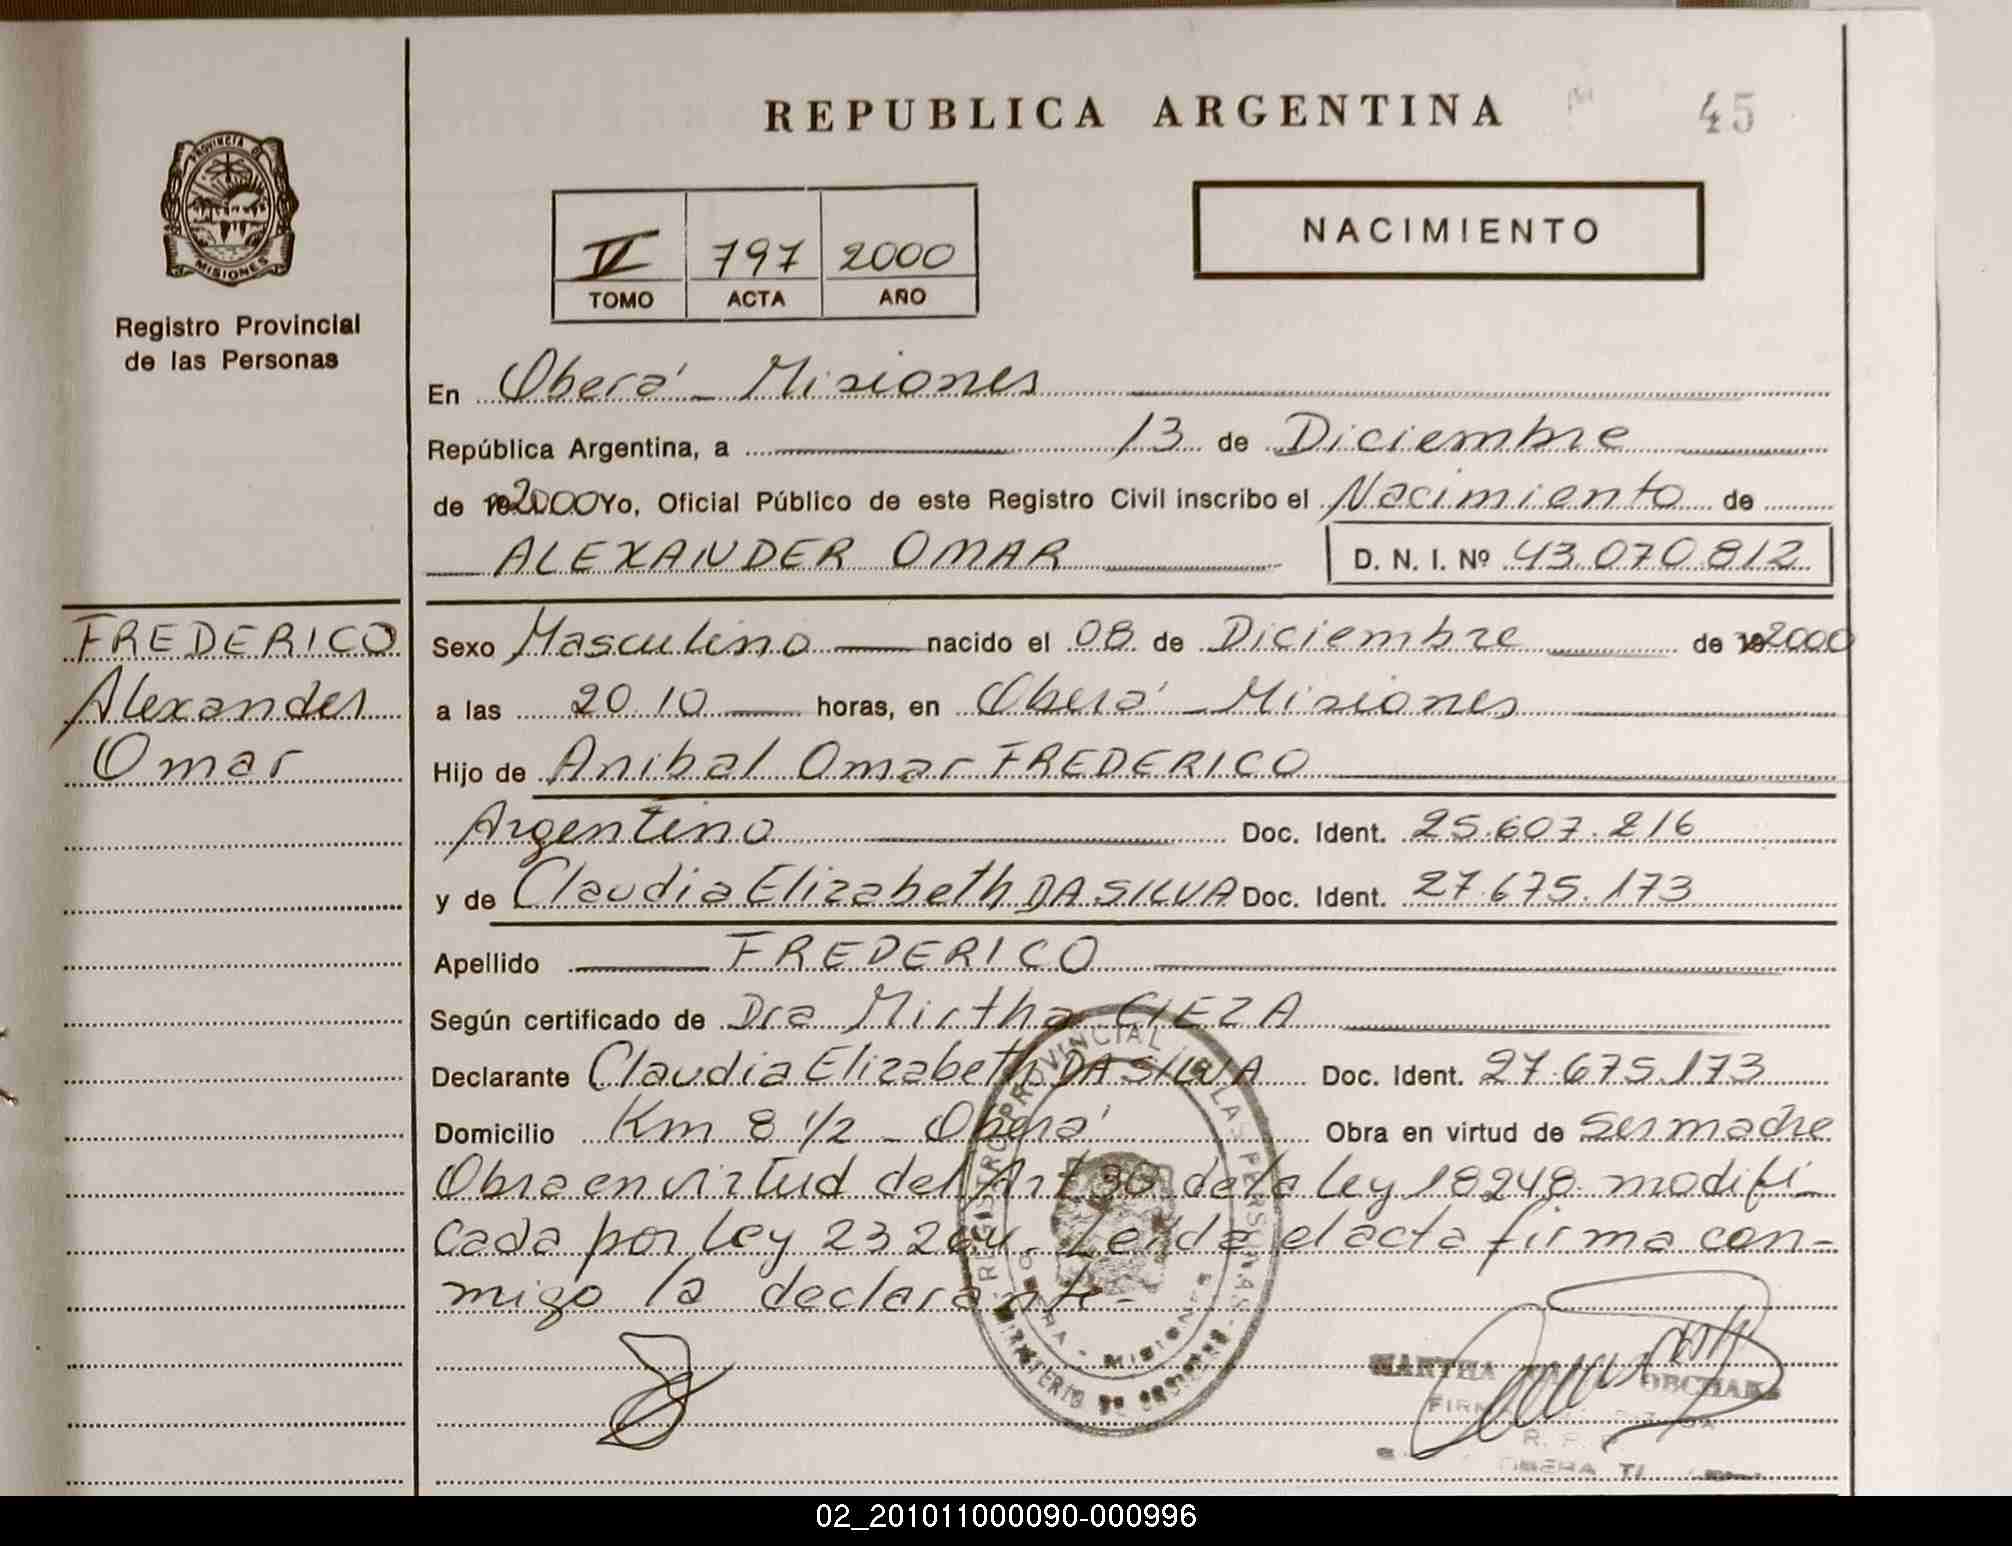 REPUBLICA ARGENTINA
45
PROVINCIA DE
MISIONES
Registro Provincial
de las Personas
797 2000
TOMO ACTA AÑO
NACIMIENTO
En Oberá - Misiones
República Argentina, a 13 de Diciembre
de 2000 Yo, Oficial Público de este Registro Civil inscribo el Nacimiento de
ALEXANDER OMAR D. N. I. Nº 43.070.812
FREDERICO
Alexander
Omar
Sexo Masculino nacido el 08 de Diciembre de 2000
a las 20.10 horas, en Oberá - Misiones
Hijo de Anibal Omar FREDERICO
Argentino Doc. Ident. 25.607.216
y de Claudia Elizabeth DA SILVA Doc. Ident. 27.675.173
Apellido FREDERICO
Según certificado de Dra Mirtha CIEZA
Declarante Claudia Elizabeth DA SILVA Doc. Ident. 27.675.173
Domicilio Km 8 1/2 - Oberá Obra en virtud de ser madre
Obra en virtud del Art 30 de la ley 18248 modifi-
cada por ley 23264. Leída el acta firma con-
migo la declarante-
REGISTRO PROVINCIAL DE LAS PERSONAS
OBERA - MISIONES
MARTHA
R. P. P.
OBERA
02_201011000090-000996